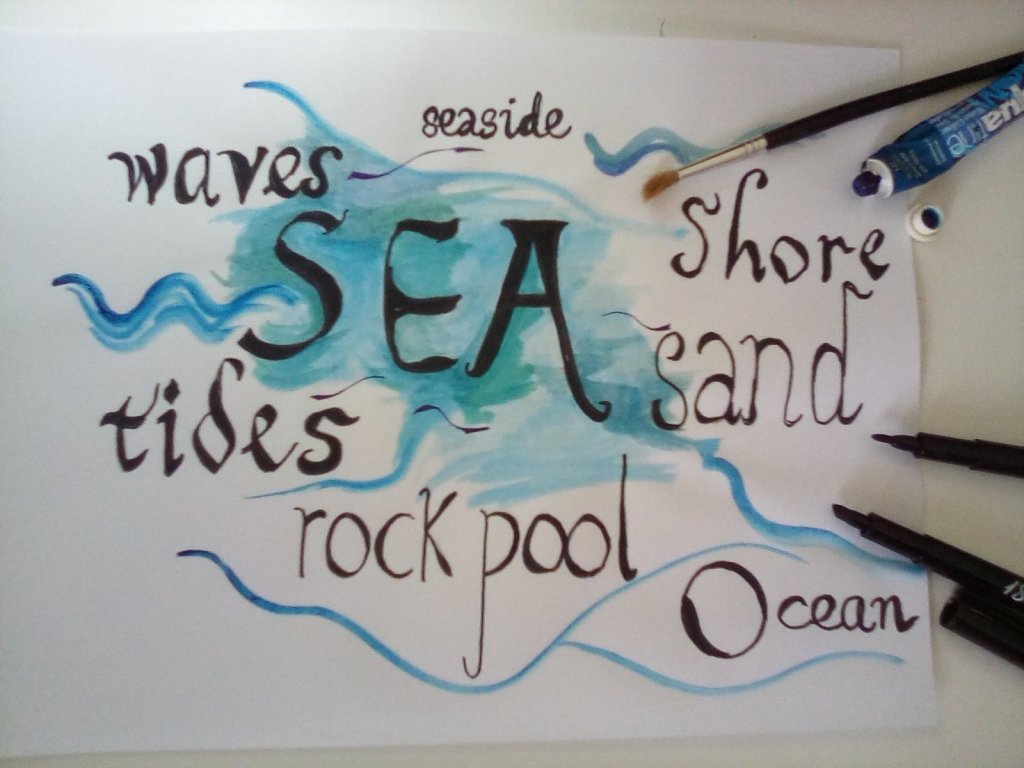 seaside
waves
SEA
Shore
sand
tides
rock pool
Ocean